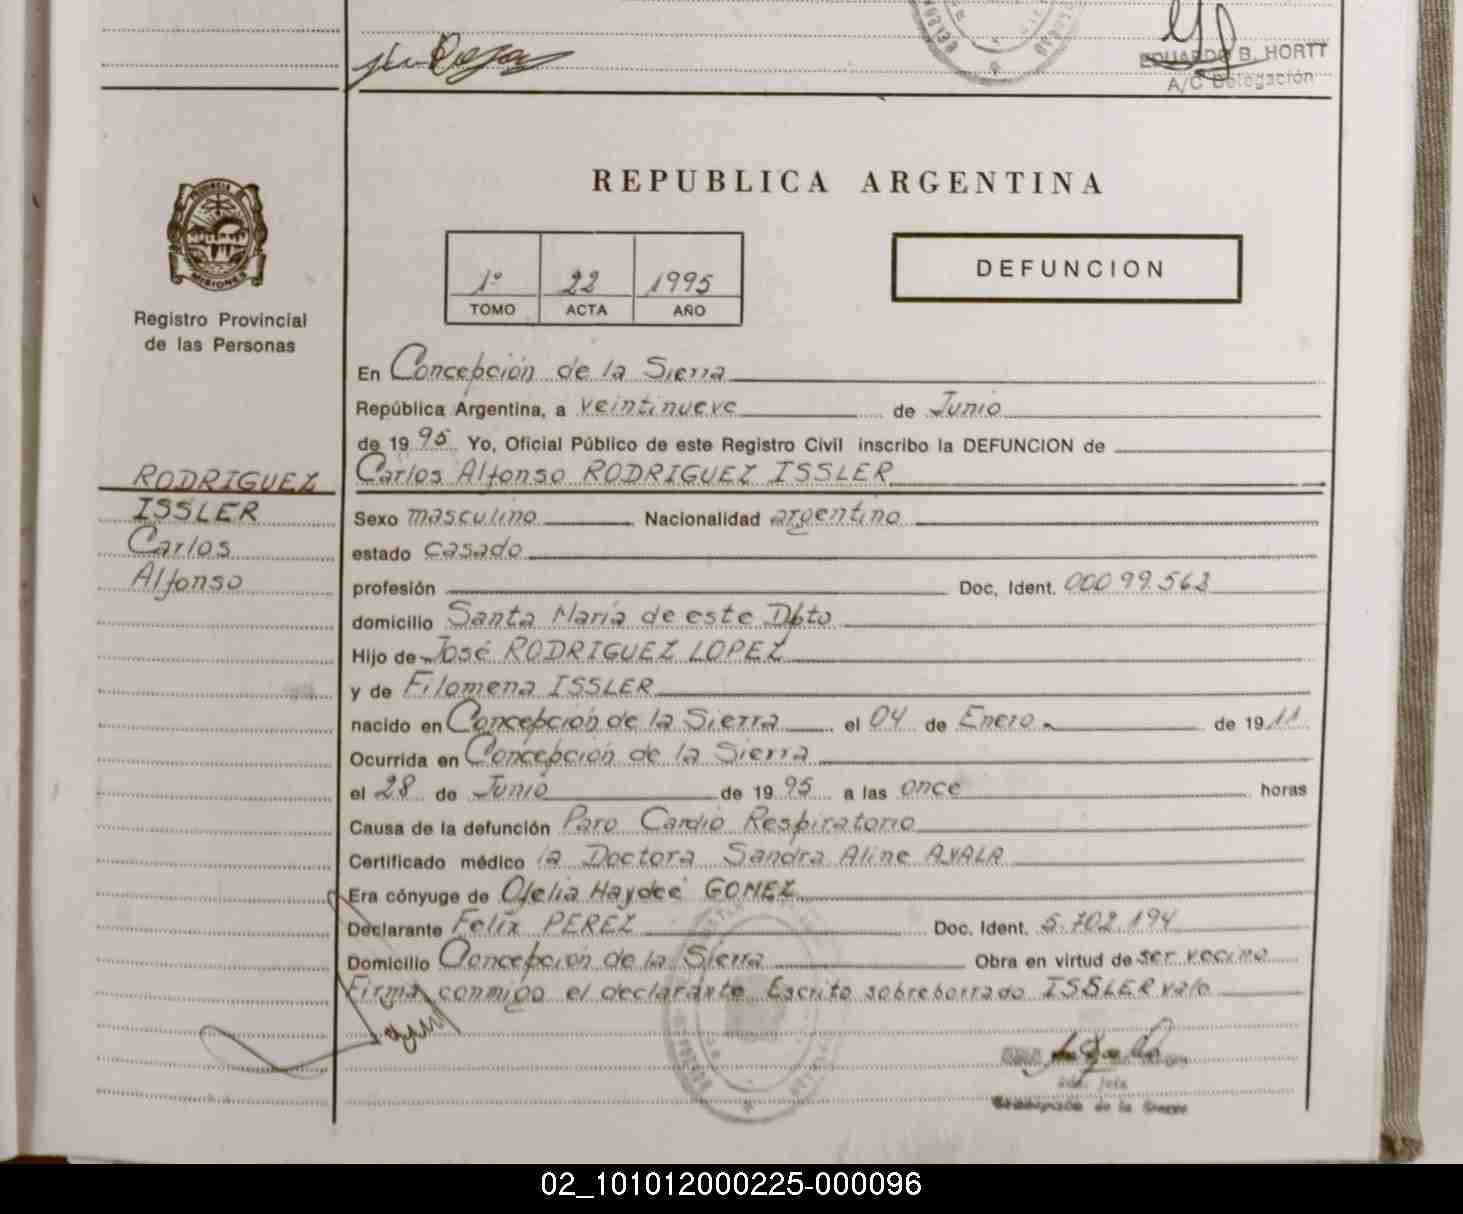 EDUARDO B. HORTT
A/C Delegación
PROVINCIA DE
MISIONES
Registro Provincial
de las Personas
REPUBLICA ARGENTINA
1º 22 1995
TOMO ACTA AÑO
DEFUNCION
En Concepción de la Sierra
República Argentina, a veintinueve de Junio
de 1995 Yo, Oficial Público de este Registro Civil inscribo la DEFUNCION de
Carlos Alfonso RODRIGUEZ ISSLER
RODRIGUEZ
ISSLER
Carlos
Alfonso
Sexo masculino Nacionalidad argentino
estado casado
profesión Doc. Ident. 00099.563
domicilio Santa María de este Dpto
Hijo de José RODRIGUEZ LOPEZ
y de Filomena ISSLER
nacido en Concepción de la Sierra el 04 de Enero de 1911
Ocurrida en Concepción de la Sierra
el 28 de Junio de 1995 a las once horas
Causa de la defunción Paro Cardio Respiratorio
Certificado médico la Doctora Sandra Aline AYALA
Era cónyuge de Ofelia Haydeé GOMEZ
Declarante Felix PEREZ Doc. Ident. 5.702.194
Domicilio Concepción de la Sierra Obra en virtud de ser vecino
Firma conmigo el declarante Escrito sobreborrado ISSLER vale
de la Sierra
02_101012000225-000096